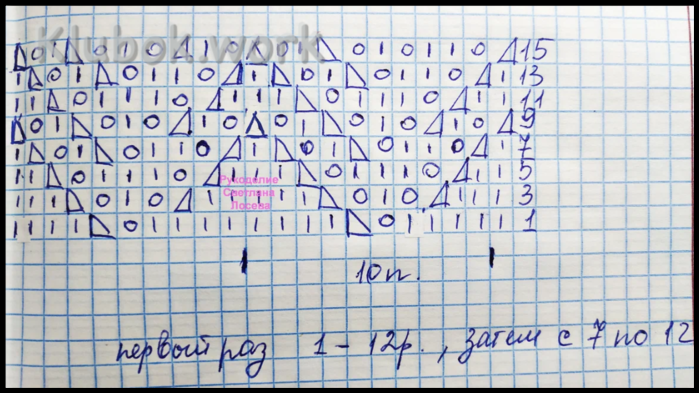 Klubok.work
15
13
11
9
7
5
3
1
Рукоделие
Светлана
Лосева
10п.
первый раз 1-12р., затем с 7 по 12